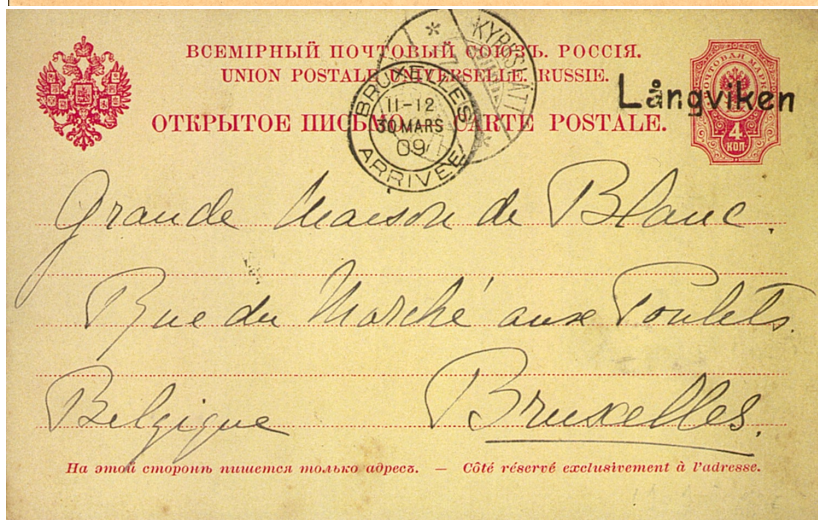 ВСЕМІРНЫЙ ПОЧТОВЫЙ СОЮЗЪ. РОССІЯ.
UNION POSTALE UNIVERSELLE. RUSSIE.
ОТКРЫТОЕ ПИСЬМО. CARTE POSTALE.
KYRKSLÄTT
BRUXELLES
11-12
30 MARS
09
ARRIVEE
ПОЧТОВАЯ МАРКА
4
КОП
Långviken
Grande Maison de Blanc.
Rue du Marché aux Poulets.
Belgique Bruxelles.
На этой сторонѣ пишется только адресъ. — Côté réservé exclusivement à l'adresse.